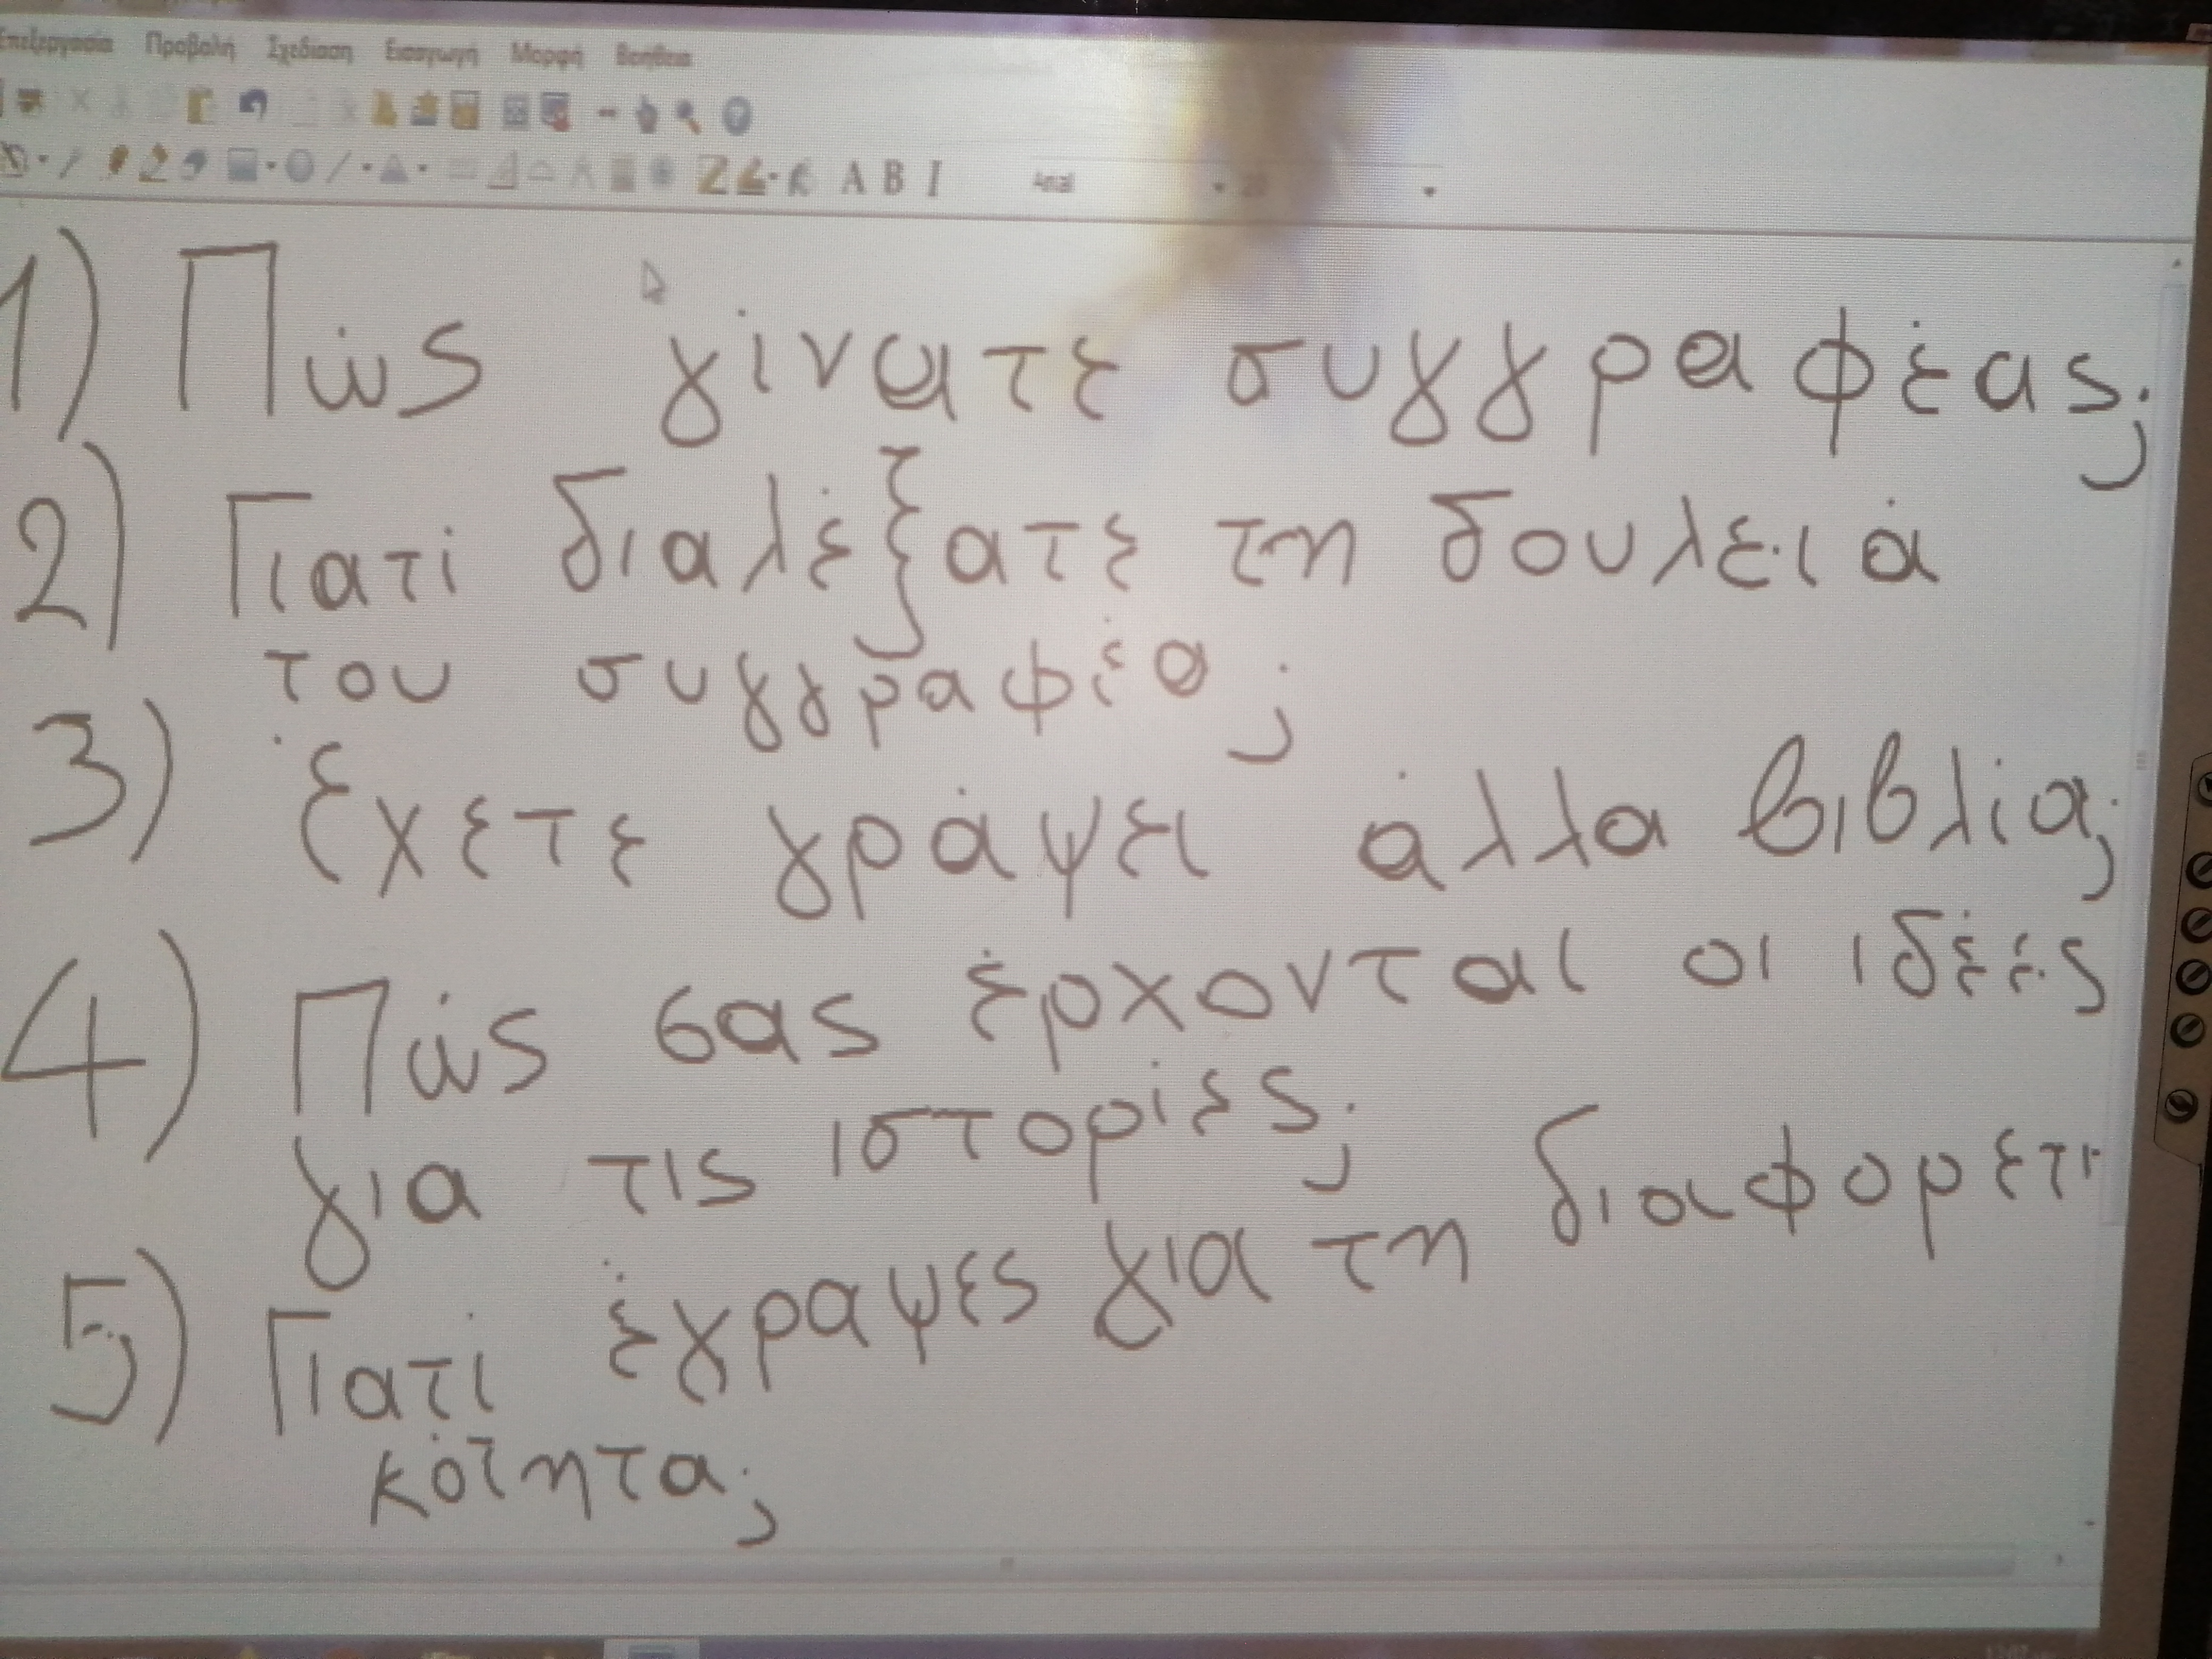 Επεξεργασία Προβολή Σχεδίαση Εισαγωγή Μορφή Βοήθεια
A B I Arial 20
1) Πώς γίνατε συγγραφέας;
2) Γιατί διαλέξατε τη δουλειά
του συγγραφέα;
3) έχετε γράψει άλλα βιβλία;
4) Πώς σας έρχονται οι ιδέες
για τις ιστορίες;
5) Γιατί έγραψες για τη διαφορετι
κότητα;